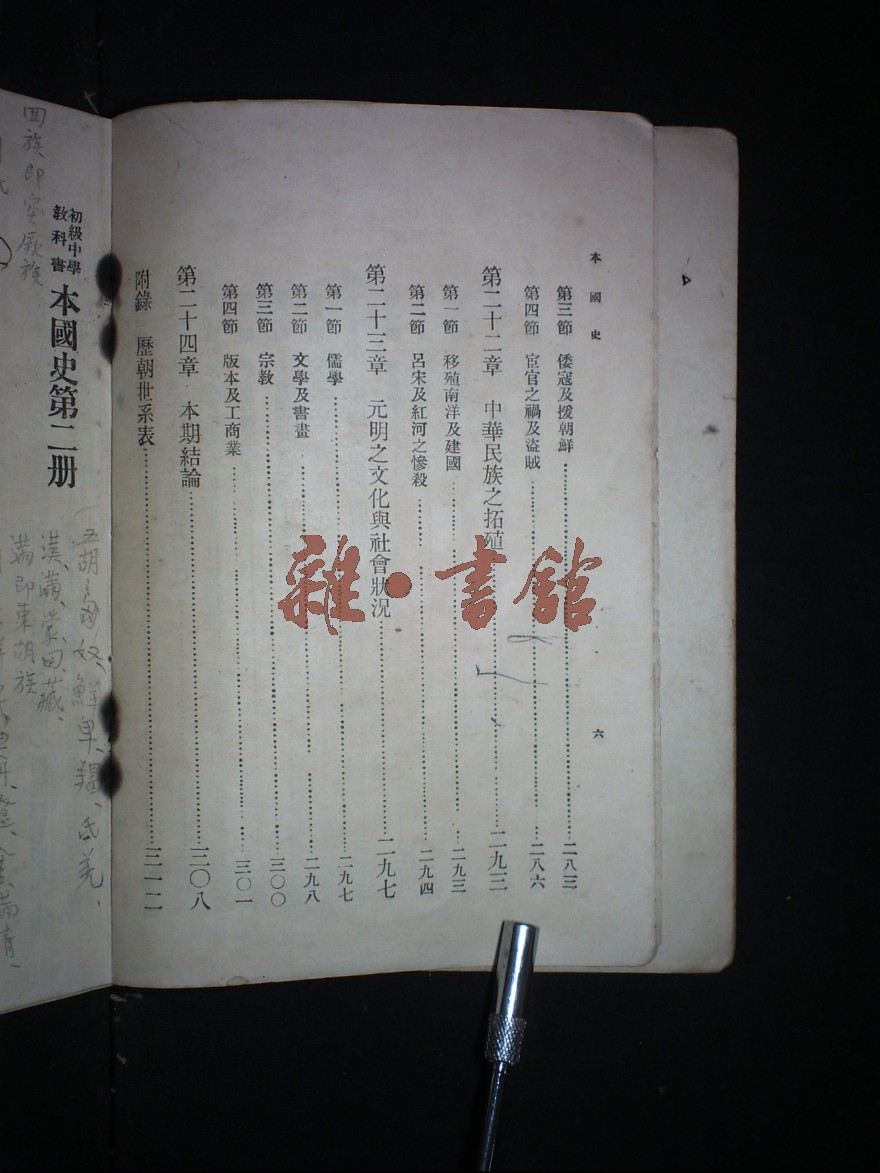 本國史
六
第三節 倭寇及援朝鮮……二八三
第四節 宦官之禍及盜賊……二八六
第二十二章 中華民族之拓殖……二九三
第一節 移殖南洋及建國……二九三
第二節 呂宋及紅河之慘殺……二九四
第二十三章 元明之文化與社會狀況……二九七
第一節 儒學……二九七
第二節 文學及書畫……二九八
第三節 宗教……三〇〇
第四節 版本及工商業……三〇一
第二十四章 本期結論……三〇八
附錄 歷朝世系表……三一二
初級中學
教科書
本國史第二册
五胡 匈奴、鮮卑、羯、氐羌、
漢、滿、蒙、回、藏、
滿即東胡族
回族即突厥族
雜·書館